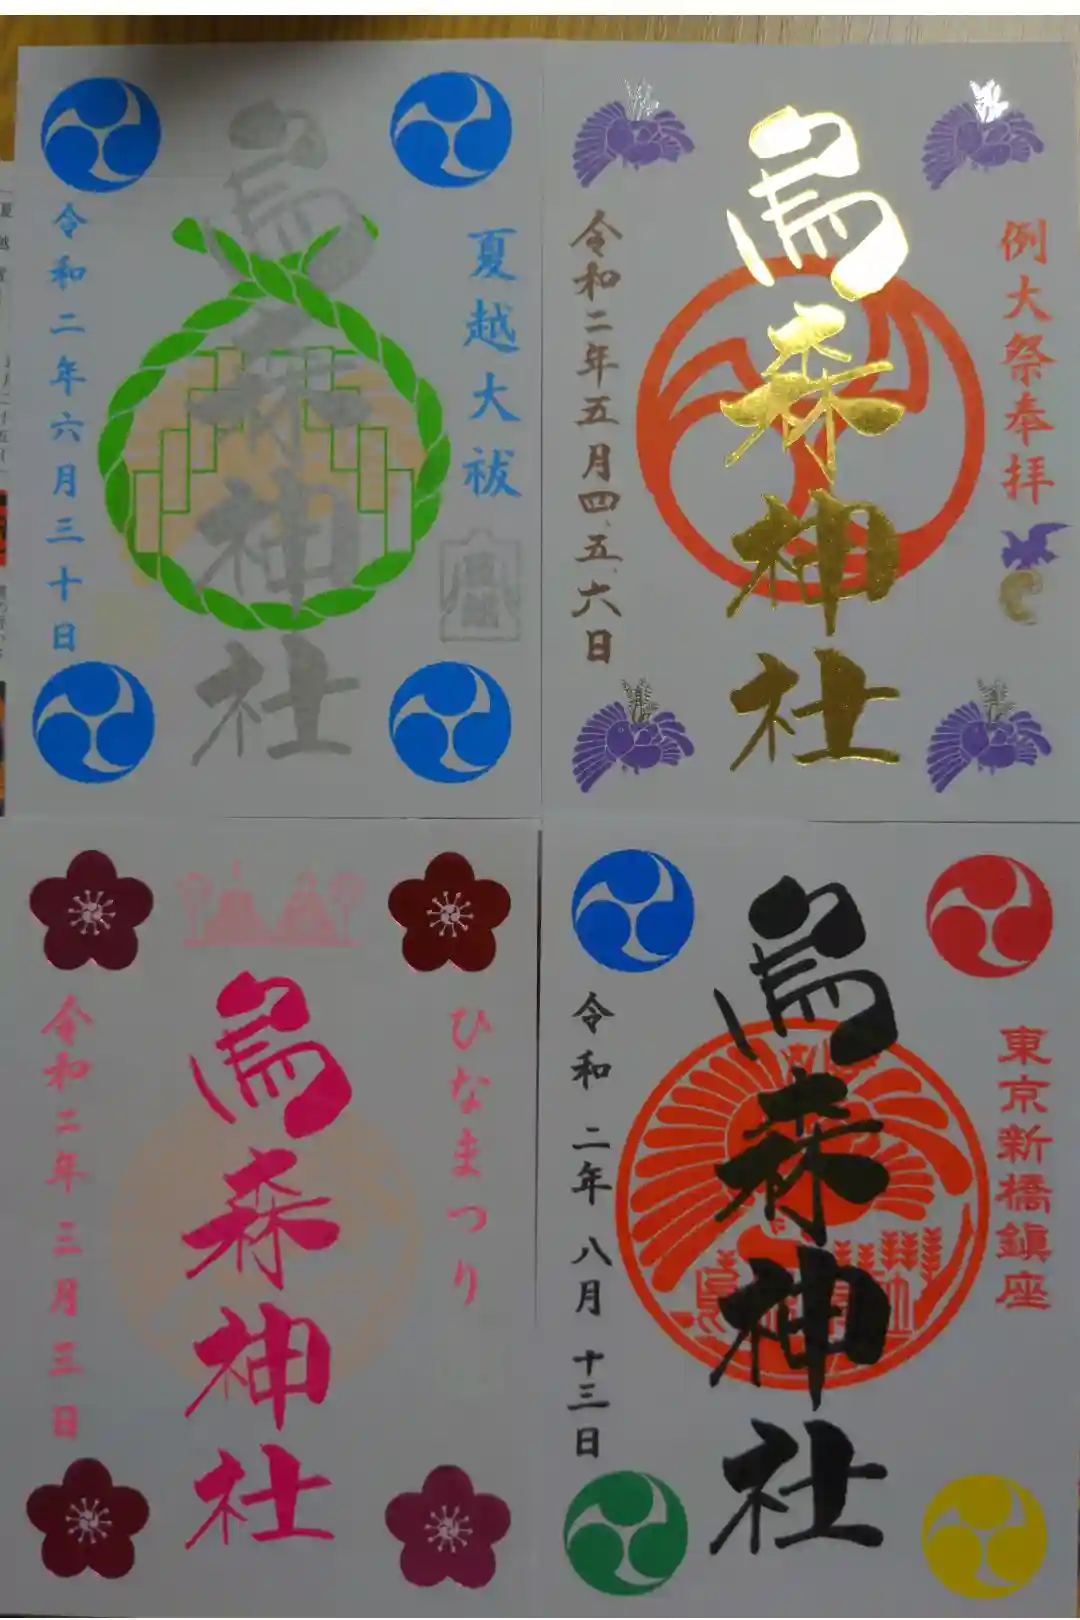 夏越大祓
烏森神社
令和二年六月三十日
例大祭奉拝
烏森神社
令和二年五月四、五、六日
ひなまつり
烏森神社
令和二年三月三日
東京新橋鎮座
烏森神社
令和二年八月十三日